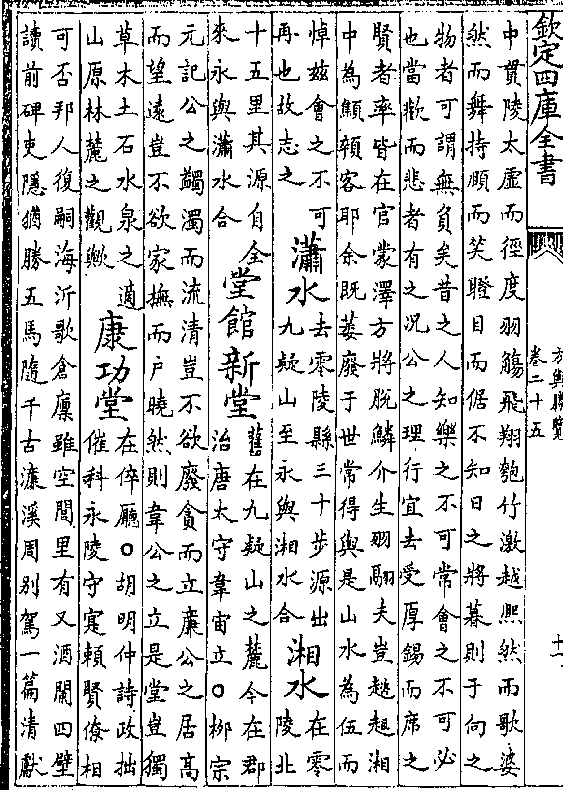 欽定四庫全書
方輿勝覽
卷二十五
十一
中貫陵太虛而徑度羽觴飛翔匏竹激越熙然而歌婆
然而舞持頤而笑瞪目而倨不知日之將暮則于向之
物者可謂無負矣昔之人知樂之不可常會之不可必
也當歡而悲者有之況公之理行宜去受厚錫而席之
賢者率皆在官蒙澤方將脫鱗介生羽翮夫豈趑趄湘
中為顦顇客耶余既萎廢于世常得與是山水為伍而
悼玆會之不可
再也故志之
瀟水
去零陵縣三十步源出
九疑山至永與湘水合
湘水
在零
陵北
十五里其源自全
來永與瀟水合
堂館新堂
舊在九疑山之麓今在郡
治唐太守韋宙立○柳宗
元記公之蠲濁而流清豈不欲廢貪而立廉公之居高
而望遠豈不欲家撫而戶曉然則韋公之立是堂豈獨
草木土石水泉之適
山原林麓之觀歟
康功堂
在倅廳○胡明仲詩政拙
催科永陵守寔賴賢僚相
可否邦人復嗣海沂歌倉廩雖空閭里有又酒闌四壁
讀前碑吏隱猶勝五馬隨千古濂溪周別駕一篇清獻